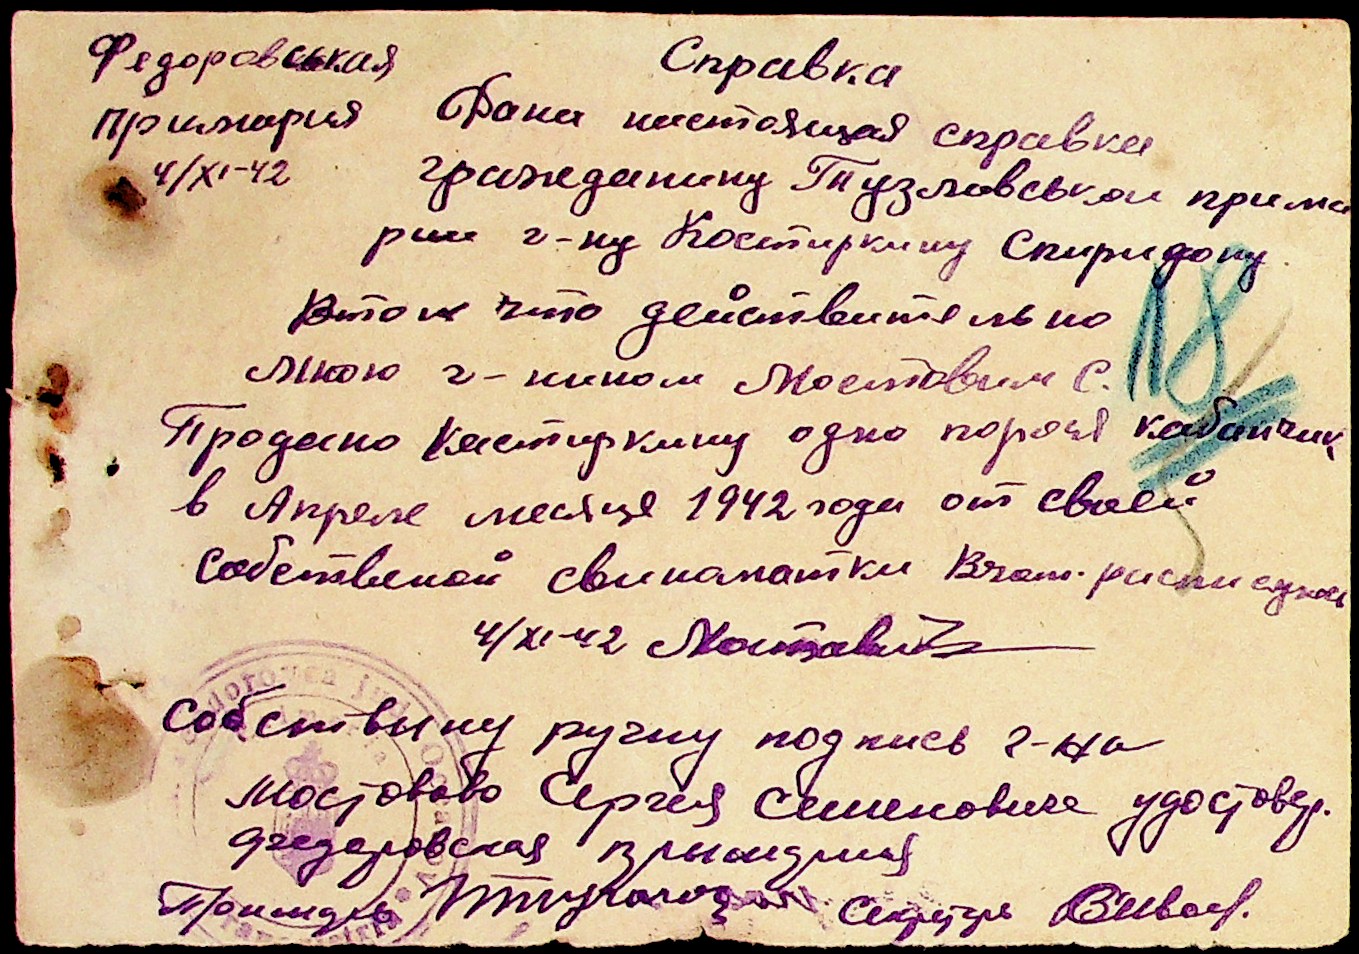 Федоровськая
Примария
4/XI-42
Справка
Дана настоящая справка
гражданину Тузловськой прима
рии г-ну Костиркину Спиридону
Втом что действительно
мною г-нином Мостовым С.
Продано Кастиркину одно порося кабанчик
в Апреле месяце 1942 года от своей
Собственой свиноматки Вчом. расписуюсь
4/XI-42 Мостовий
18
Собствыну ручну подпись г-на
Мостовово Сергея Семеновича удостовер.
Федоровская примария
Примарь
Секретарь